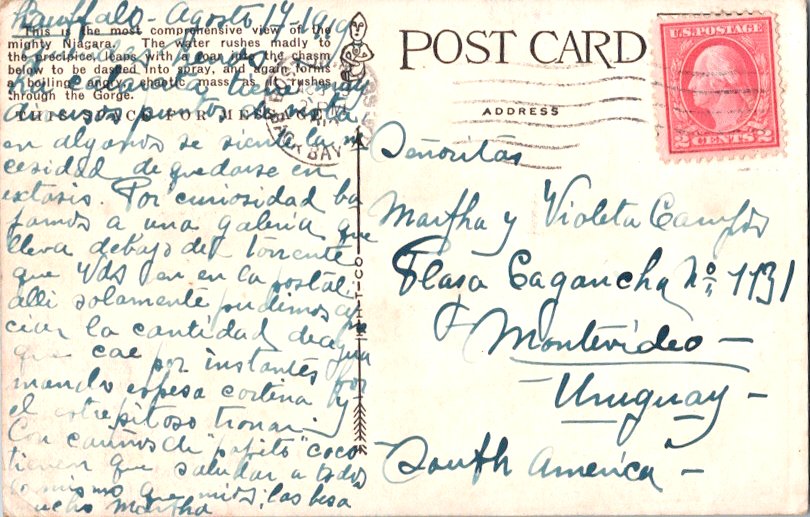 Buffalo - Agosto 17-1919
This is the most comprehensive view of the
mighty Niagara. The water rushes madly to
the precipice, leaps with a roar into the chasm
below to be dashed into spray, and again forms
a boiling angry chaotic mass as it rushes
through the Gorge.
THIS SPACE FOR MESSAGE
diversos puntos de vista
en algunos se siente la ne
cesidad de quedarse en
extasis. Por curiosidad ba
jamos a una galeria que
lleva debajo del torrente
que Vds ven en la postal.
alli solamente pudimos apre
ciar la cantidad de agua
que cae por instantes for
mando espesa cortina y
el estrepitoso tronar.
Con cariños de "papito" coco
tienen que saludar a todos
lo mismo que mios, las besa
mucho Martha
H-T-CO
POST CARD
ADDRESS
BACK BAY
U.S. POSTAGE
2 CENTS 2
Señoritas
Martha y Violeta Campos
Plasa Cagancha No. 1131
Montevideo -
Uruguay -
South America -